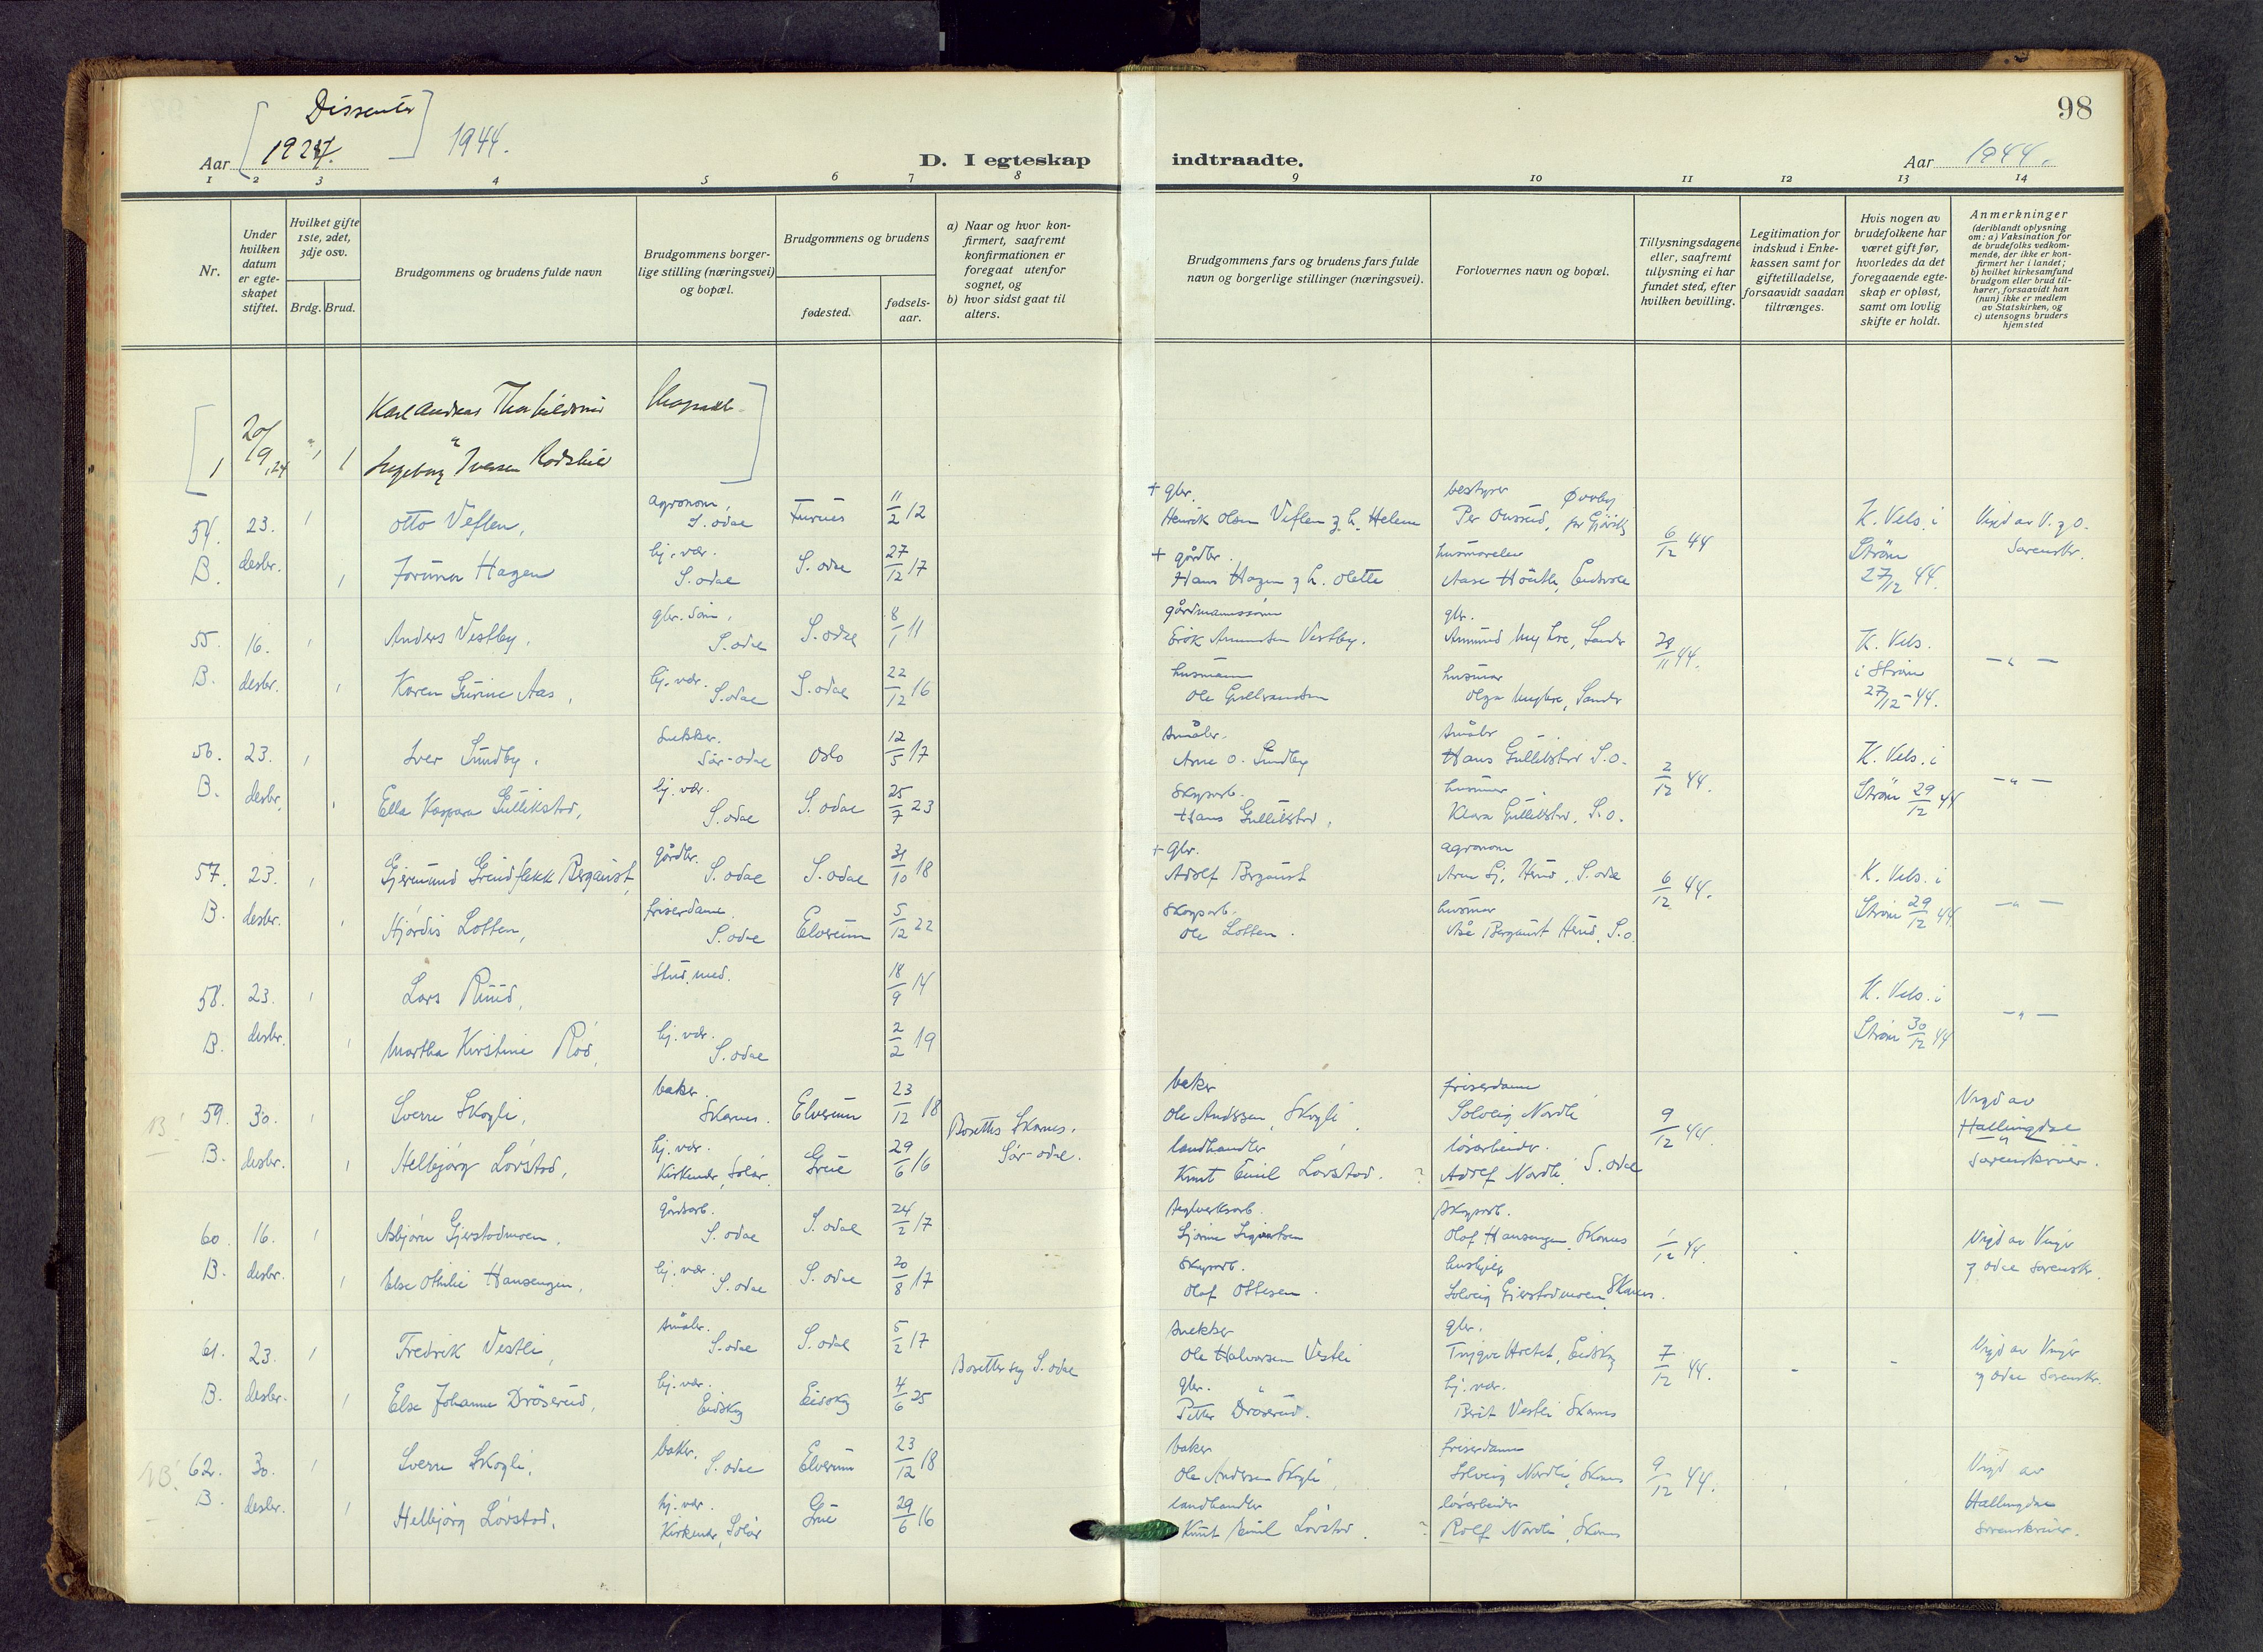 98
Dissenter
1944.
Aar 1924.
D. I egteskap indtraadte.
Aar 1944.
1 2 3 4 5 6 7 8 9 10 11 12 13 14
Nr.
Under hvilken datum er egteskapet stiftet.
Hvilket gifte 1ste, 2det, 3dje osv.
Brdg. Brud.
Brudgommens og brudens fulde navn
Brudgommens borgerlige stilling (næringsvei) og bopæl.
Brudgommens og brudens
fødested.
fødselsaar.
a) Naar og hvor konfirmert, saafremt konfirmationen er foregaat utenfor sognet, og
b) hvor sidst gaat til alters.
Brudgommens fars og brudens fars fulde navn og borgerlige stillinger (næringsvei).
Forlovernes navn og bopæl.
Tillysningsdagene eller, saafremt tillysning ei har fundet sted, efter hvilken bevilling.
Legitimation for indskud i Enkekassen samt for giftetilladelse, forsaavidt saadan tiltrænges.
Hvis nogen av brudefolkene har været gift før, hvorledes da det foregaaende egteskap er opløst, samt om lovlig skifte er holdt.
Anmerkninger (deriblandt oplysning om: a) Vaksination for de brudefolks vedkommende, der ikke er konfirmert her i landet; b) hvilket kirkesamfund brudgom eller brud tilhører, forsaavidt han (hun) ikke er medlem av Statskirken, og c) utensogns bruders hjemsted
1 20/9 24 1 1 Karl Andreas
Ingeborg Iversen
54. 23. 1 Otto Veflen, agronom, S. odal Furnes 11/2 12 + gbr. Henrik Olsen Veflen og h. Helene bestyrer Per 6/12 44 K. Vels. i Strøm 27/12 44. Vigd av V. og O. Sorenskr.
B. desbr. 1 Jorunn Hagen hj. vær. S. odal S. odal 27/12 17 + gårdbr. Hans Hagen og h. Olette Aase
55. 16. 1 Anders Vestby, gbr. søn, S. odal S. odal 8/1 11 gårdmannssønn Erik Amundsen Vestby. gbr. Amund Myhre, Sander 28/11 44. K. Vels. i Strøm 27/12-44. — " —
B. desbr. 1 Karen Gurine Aas, hj. vær. S. odal S. odal 22/12 16 husmann Ole Gulbrandsen husmor Olga Myhre, Sander
56. 23. 1 Iver Sundby. Snekker. Sør-odal Oslo 12/5 17 småbr. Arne O. Sundby småbr. Hans Gullikstad S.o. 2/12 44. K. Vels. i Strøm 29/12 44 — " —
B. desbr. 1 Ella Kaspara Gullikstad, hj. vær. S. odal S. odal 25/7 23 skogsarb. Hans Gullikstad. husmor Klara Gullikstad. S.o.
57. 23. 1 Gjermund Grindflekk Berqvist, gårdbr. S. odal S. odal 31/10 18 + gbr. Adolf Bergqvist agronom Arne S. odal 6/12 44. K. Vels. i Strøm 29/12 44 — " —
B. desbr. 1 Hjørdis Lotten, friserdame. S. odal Elverum 5/12 22 skogsarb. Ole Lotten. husmor S.o.
58. 23. 1 Lars Ruud, stud. med. 18/9 14 K. Vels. i Strøm 30/12 44 — " —
B. desbr. 1 Martha Kirstine Rød, hj. vær. S. odal 2/2 19
59. 30. 1 Sverre Skogli, baker. Skarnes. Elverum 23/12 18 Bosettes Skarnes. Sør-odal. baker Ole Andersen Skogli, friserdame Solveig Nordli 9/12 44. Vigd av Hallingdal sorenskriver.
B. desbr. 1 Helbjørg Løvstad, hj. vær. Kirkenær, Solør. Grue 29/6 16 landhandler Knut Emil Løvstad. ? løsarbeider. Adolf Nordli. S. odal
60. 16. 1 Asbjørn Gjerstadmoen, gårdsarb. S. odal S. odal 24/2 17 skogsarb. Olaf Hansengen, Skarnes 1/12 44 Vigd av Vinger og odal sorenskr.
B. desbr. 1 Else Othilie Hansengen, hj. vær. S. odal S. odal 20/8 17 skogsarb. Olaf Ottesen. hushjelp Solveig Gjerstadmoen Skarnes.
61. 23. 1 Fredrik Vestli, småbr. S. odal S. odal 5/2 17 Bosetter seg S. odal snekker Ole Halvorsen Vestli gbr. Trygve Eidskog 7/12 44. - - Vigd av Vinger og odal Sorenskr.
B. desbr. 1 Else Johanne Drøserud, hj. vær. Eidskog Eidskog 4/6 25 gbr. Petter Drøserud. hj. vær. Berit Vestli Skarnes
62. 30. 1 Sverre Skogli. baker. S. odal Elverum 23/12 18 baker Ole Andersen Skogli friserdame Solveig Nordli, Skarnes 9/12 44. Vigd av Hallingdal sorenskriver.
B. desbr. 1 Helbjørg Løvstad. hj. vær. Kirkenær, Solør Grue 29/6 16 landhandler Knut Emil Løvstad. ? løsarbeider Rolf Nordli, Skarnes